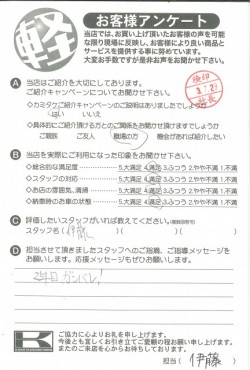 軽
お客様アンケート
当店では、お買い上げ頂いたお客様の声を可能
な限り現場に反映し、お客様により良い商品と
サービスを提供する事に努めています。
大変お手数ですが是非お声をお聞かせ下さい。
A 当店はご紹介を大切にしております。
ご紹介キャンペーンについてお聞かせ下さい。
◇カミタケご紹介キャンペーンのご説明はありましたでしょうか
はい いいえ
◇具体的にご紹介頂ける方とのご関係をお聞かせ頂けますでしょうか
ご親族 ご友人 職場の方 機会があれば紹介したい
B 当店を実際にご利用になった印象をお聞かせ下さい。
◇総合的な満足度 5.大満足 4.満足 3.ふつう 2.やや不満 1.不満
◇スタッフの対応 5.大満足 4.満足 3.ふつう 2.やや不満 1.不満
◇お店の雰囲気、清掃 5.大満足 4.満足 3.ふつう 2.やや不満 1.不満
◇納車時のお車の状態 5.大満足 4.満足 3.ふつう 2.やや不満 1.不満
C 評価したいスタッフがいれば教えてください。(複数回答可)
スタッフ名( 伊藤
D 担当させて頂きましたスタッフへのご指摘、ご指導メッセージを
お願いします。応援メッセージもぜひお願いします。
2年目ガンバレ!
K
ご協力に心よりお礼を申し上げます。
今後とも宜しくお引き立てご愛顧の程お願い申し上げます。
またのご来店を心からお待ちしております。
担当( 伊藤 )